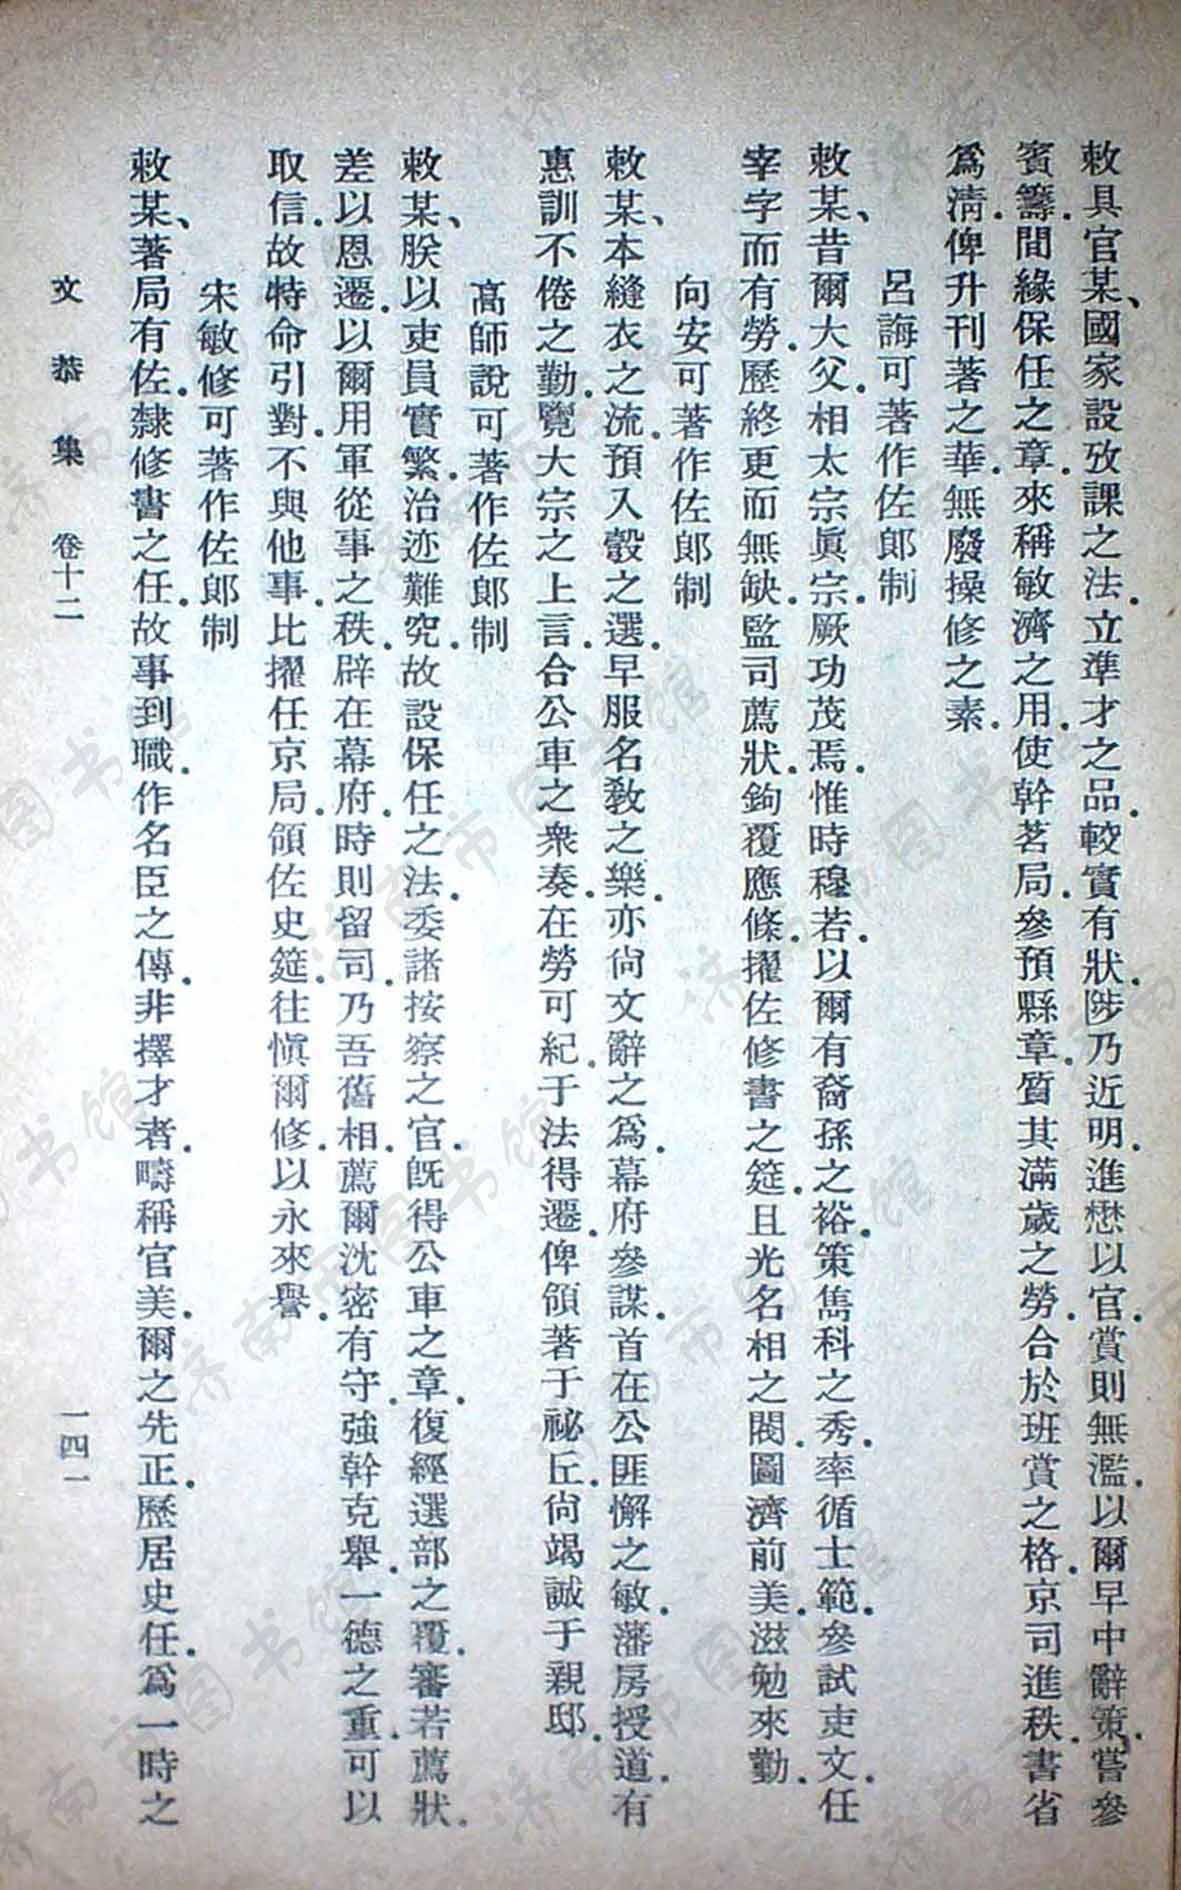 敕具官某、國家設攷課之法.立準才之品.較實有狀.陟乃近明.進懋以官.賞則無濫.以爾早中辭策.嘗參
賓籌.間緣保任之章.來稱敏濟之用.使幹茗局.參預縣章.質其滿歲之勞.合於班賞之格.京司進秩.書省
爲淸.俾升刊著之華.無廢操修之素.
呂誨可著作佐郞制
敕某、昔爾大父.相太宗眞宗.厥功茂焉.惟時穆若.以爾有裔孫之裕.策雋科之秀.率循士範.參試吏文.任
宰字而有勞.歷終更而無缺.監司薦狀.鉤覆應條.擢佐修書之筵.且光名相之閥.圖濟前美.滋勉來勤.
向安可著作佐郞制
敕某、本縫衣之流.預入彀之選.早服名敎之樂.亦尙文辭之爲.幕府參謀.首在公匪懈之敏.藩房授道.有
惠訓不倦之勤.覽大宗之上言.合公車之衆奏.在勞可紀.于法得遷.俾領著于祕丘.尙竭誠于親邸.
高師說可著作佐郞制
敕某、朕以吏員實繁.治迹難究.故設保任之法.委諸按察之官.旣得公車之章.復經選部之覆.審若薦狀.
差以恩遷.以爾用軍從事之秩.辟在幕府.時則留司.乃吾舊相.薦爾沈密有守.強幹克舉.一德之重.可以
取信.故特命引對.不與他事.比擢任京局.領佐史筵.往愼爾修.以永來譽.
宋敏修可著作佐郞制
敕某、著局有佐.隸修書之任.故事到職.作名臣之傳.非擇才者.疇稱官美.爾之先正.歷居史任.爲一時之
文恭集 卷十二 一四一